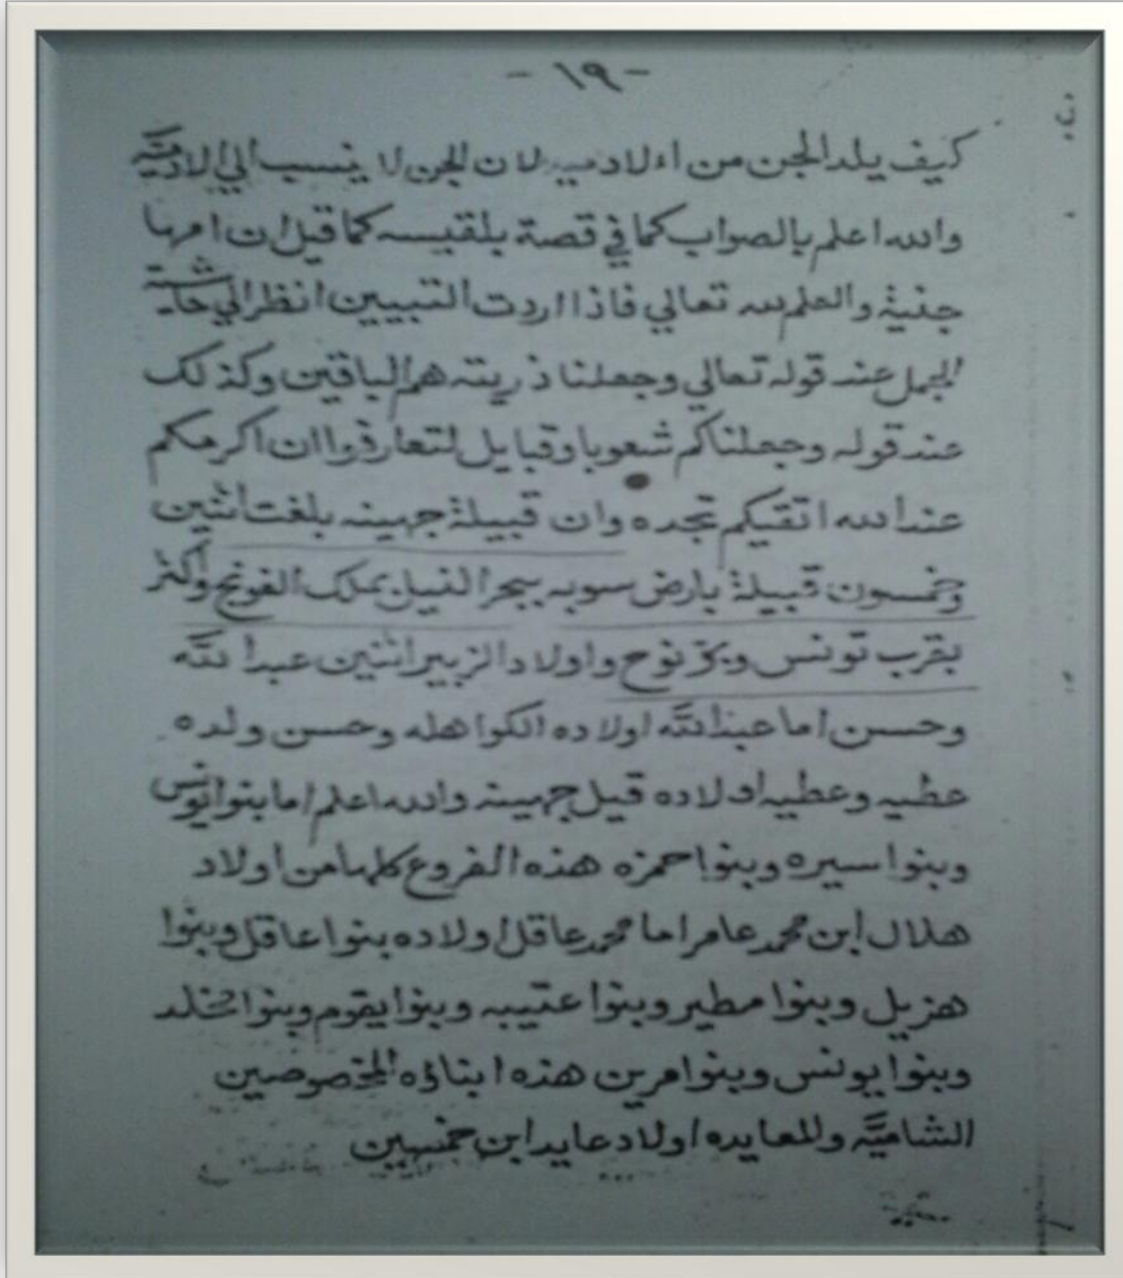 - ١٩ -
كيف يلد الجن من اولاد لان الجن لا ينسب الي الادمية
والله اعلم بالصواب كما في قصة بلقيسه كما قيل ان امها
جنية والعلم لله تعالي فاذا اردت التبيين انظر الي حاشية
الجمل عند قوله تعالي وجعلنا ذريته هم الباقين وكذلك
عند قوله وجعلناكم شعوبا وقبايل لتعارفوا ان اكرمكم
عند الله اتقيكم تجده وان قبيلة جهينه بلغت اثنين
وخمسون قبيلة بارض سوبه ببحر النيل بملك الفونج واكثر
بقرب تونس وبؤنوح واولاد الزبير اثنين عبدالله
وحسن اما عبدالله اولاده الكواهله وحسن ولده
عطيه وعطيه اولاده قيل جهينه والله اعلم اما بنوا يونس
وبنوا سيره وبنوا حمزه هذه الفروع كلها من اولاد
هلال ابن محمد عامر اما محمد عاقل اولاده بنوا عاقل وبنوا
هزيل وبنوا مطير وبنوا عتيبه وبنوا يقوم وبنوا مخلد
وبنوا يونس وبنوا مرين هذه ابناؤه المخصوصين
الشامية والمعايده اولاد عايد ابن